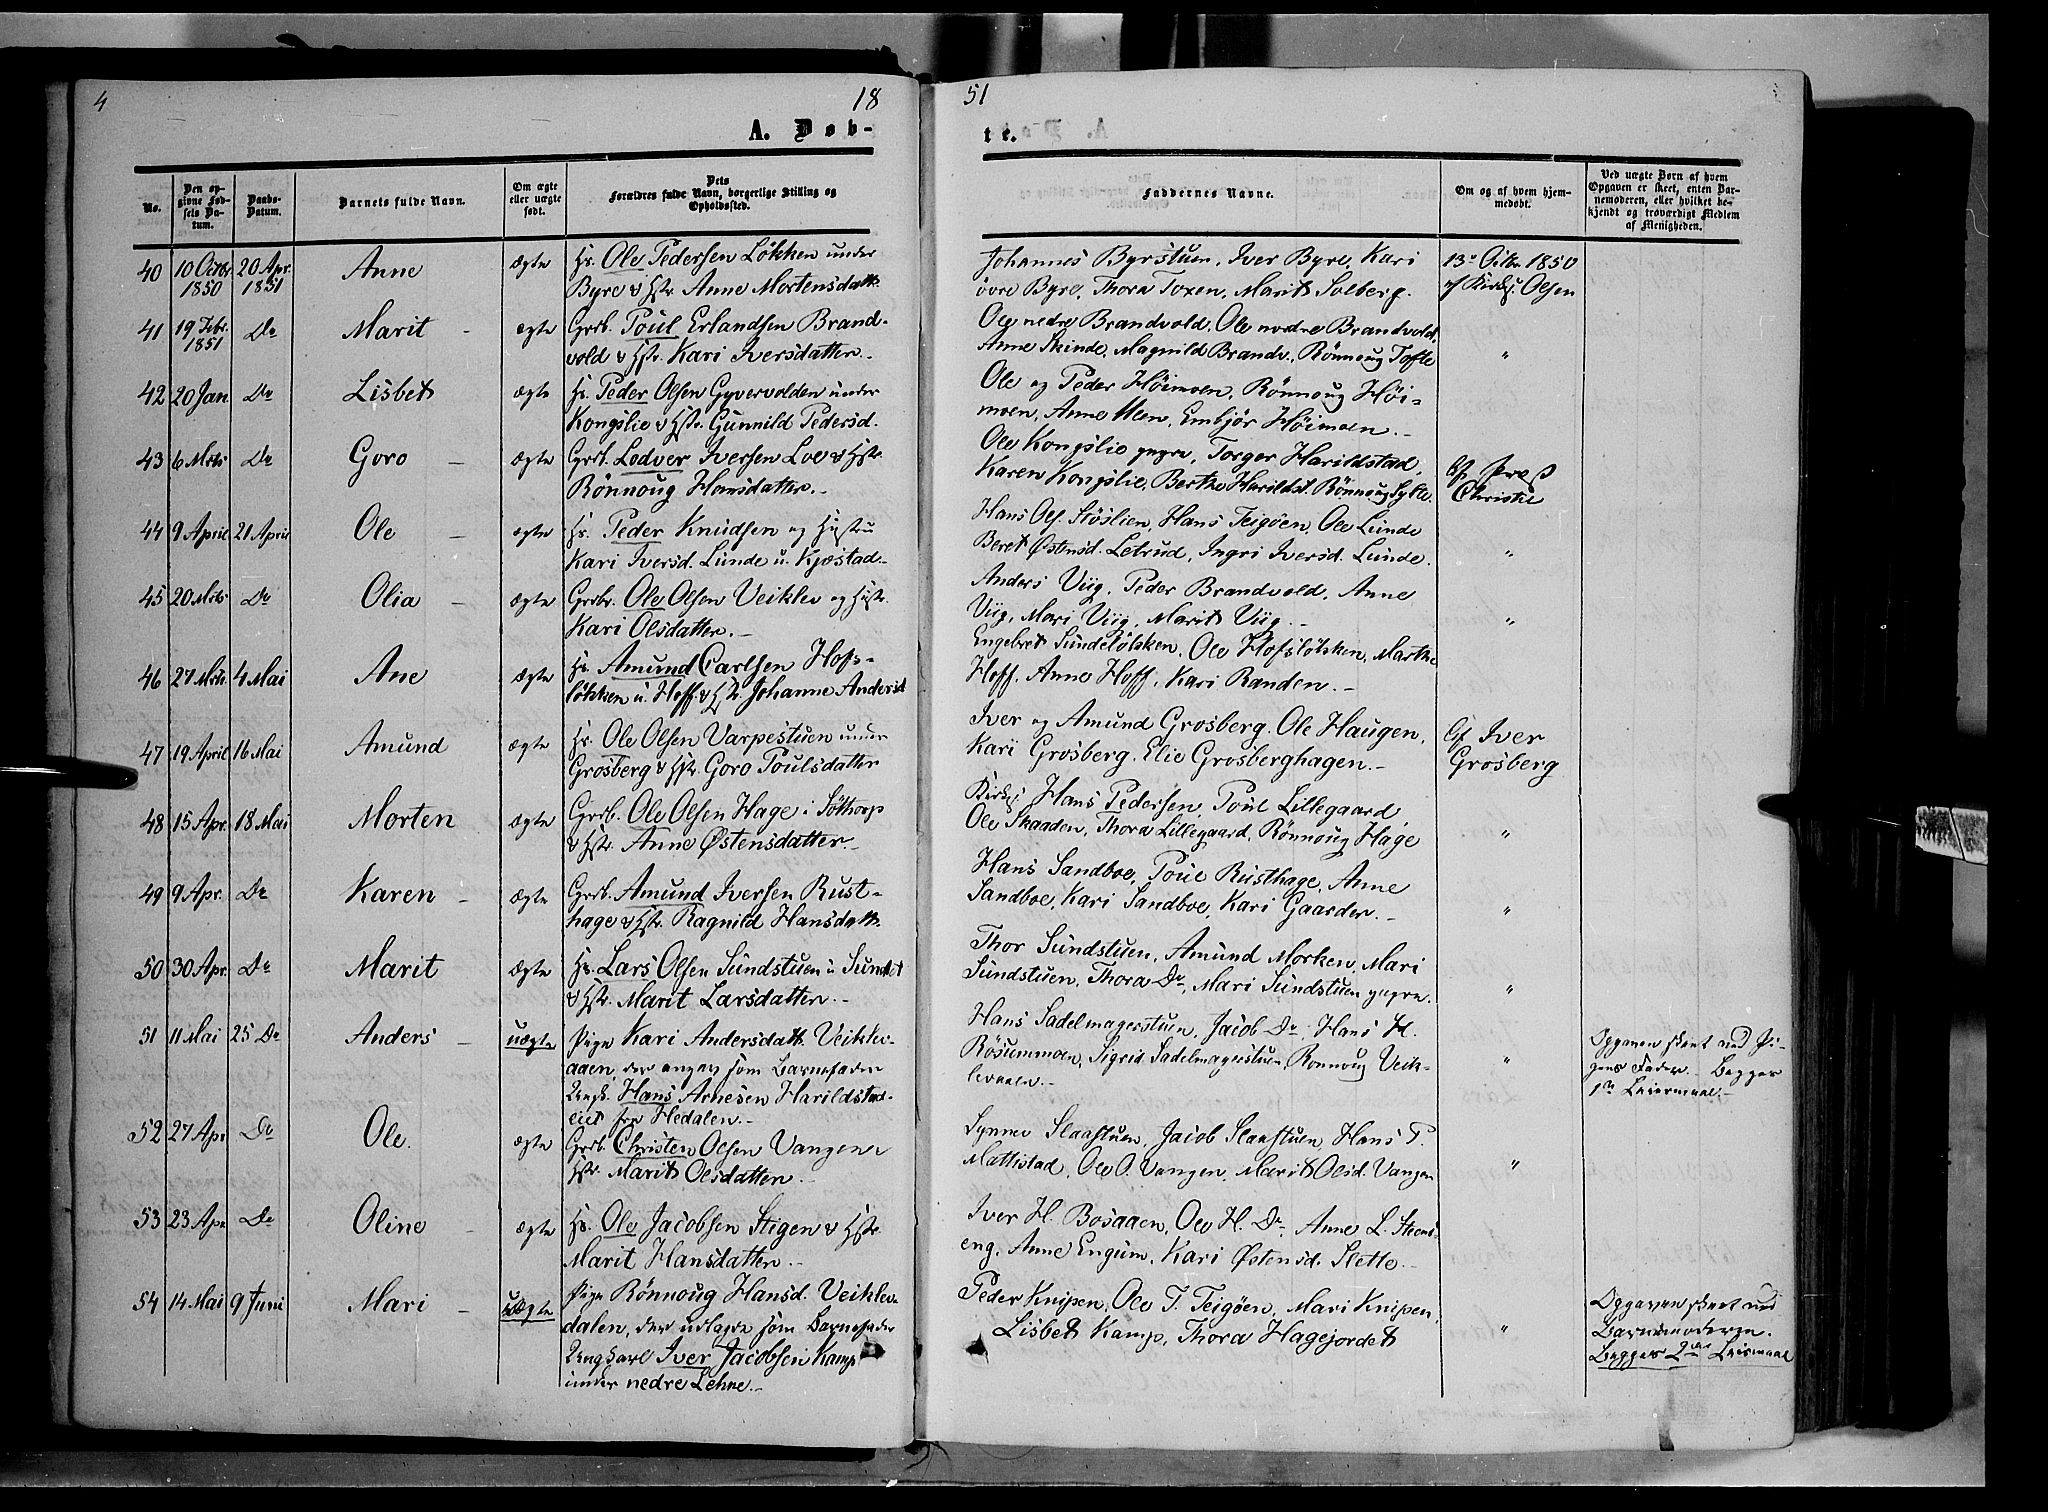 4
18
51
A. Døb-
te.
No.
Den op-
givne Fød-
sels Da-
tum.
Daabs-
Datum.
Barnets fulde Navn.
Om ægte
eller uægte
født.
Dets
Forældres fulde Navn, borgerlige Stilling og
Opholdssted.
Faddernes Navne.
Om og af hvem hjem-
medøbt.
Ved uægte Børn af hvem
Opgaven er skeet, enten Bar-
nemoderen, eller hvilket be-
kjendt og troværdigt Medlem
af Menigheden.
40 10 Octbr. 20 Apr. Anne ægte Hs. Ole Pedersen Løkken under
1850 1851 Byre & Hstr. Anne Mortensdattr.
Johannes Byrstuen, Iver Byre, Kari 13de Octbr. 1850
øvre Byre, Thora Toxen, Marit Solberg. af Kirkes. Olsen
41 19 Febr. Do Marit - ægte Grdb. Poul Erlandsen Brand-
1851 vold & Hstr. Kari Iversdatter.-
Ole nedre Brandvold, Ole nordre Brandvold,
Anne Skinde, Magnild Brandv., Rönnoug Tofte "
42 20 Jan Do Lisbet ægte Hs. Peder Olsen Gyvervolden under
Kongslie & Hstr. Gunnild Pedersd.
Ole og Peder Höimoen, Rönnoug Höi-
moen, Anne Moen, Embjör Höimoen.-
43 6 Mrts Do Goro - ægte Grdb. Lodver Iversen Loe & Hstr.
Rönnoug Hansdatter.-
Ole Kongslie yngre, Torger Harildstad,
Karen Kongslie, Berthe Harildst. Rönnoug Sylte. Af Præst
Christie
44 9 April 21 April Ole - ægte Hs. Peder Knudsen og Hustru
Kari Iversd. Lunde u. Kjæstad.-
Hans Ols. Stöslien, Hans Teigöen, Ole Lunde
Beret Østensd. Letrud, Ingri Iversd. Lunde. "
45 20 Mrts Do Olia - ægte Grdbr. Ole Olsen Veiklev og Hustr.
Kari Olsdatter.-
Anders Viig, Peder Brandvold, Anne
Viig, Mari Viig, Marit Viig.- "
46 27 Mrts. 4 Mai Ane ægte Hs. Amund Carlsen Hofs-
lökken u. Hoff & Hstr. Johanne Andersd
Engebret Sundelökken, Ole Hofslökken, Marthe
Hoff, Anne Hoff, Kari Randen.-
47 19 April 16 Mai Amund ægte Hs. Ole Olsen Varpestuen under
Grosberg & Hstr. Goro Poulsdatter
Iver og Amund Grosberg, Ole Haugen, Af Iver
Kari Grosberg, Elie Grosberghagen.- Grosberg
48 15 Apr. 18 Mai Morten ægte Grdb. Ole Olsen Hage i Söttorp
& Hstr. Anne Østensdatter.-
Kirkes. Hans Pedersen, Poul Lillegaard
Ole Skaaden, Thora Lillegaard, Rönnoug Hage "
49 9 Apr. Do Karen - ægte Grdb. Amund Iversen Rust-
hage & Hstr. Ragnild Hansdattr.
Hans Sandboe, Poul Rusthage, Anne
Sandboe, Kari Sandboe, Kari Gaarder.- "
50 30 Apr. Do Marit ægte Hs. Lars Olsen Sundstuen u Sundet
& Hstr. Marit Larsdatter.-
Thor Sundstuen, Amund Morken, Mari
Sundstuen, Thora Do, Mari Sundstuen yngre. "
51 11 Mai 25 Do Anders - uægte Pige Kari Andersdattr. Veiklev-
aaen, der angav som Barnefader
Ungk. Hans Arnesen Harildstad-
eiet fra Hedalen.-
Hans Sadelmagerstuen, Jacob Do, Hans H.
Rösummoen, Sigrid Sadelmagerstuen, Ronnoug Veik-
levaaen.- "
Opgaven skeet ved Pi-
gens Fader.- Begges
1ste Leiermaal.-
52 27 Apr Do Ole. ægte Grdb. Christen Olsen Vangen &
Hstr. Marit Olsdatter.-
Synnev Slaastuen, Jacob Slaastuen, Hans P.
Mattistad, Ole O. Vangen, Marit Olsd. Vangen "
53 23 Apr Do Oline - ægte Hs. Ole Jacobsen Stigen & Hstr.
Marit Hansdatter.-
Iver H. Bosaaen, Ole H. Do, Anne L. Steens-
eng, Anne Engum, Kari Østensd. Slette.-
54 14 Mai 9 Juni Mari - uægte Pige Rönnoug Hansd. Veiklev-
dalen, der udlagde som Barnefader
Ungkarl Iver Jacobsen Kamp
under nedre Lehne.-
Peder Knipen, Ole T. Teigöen, Mari Knipen,
Lisbet Kamp, Thora Hagejordet "
Opgaven skeet ved
Barnemoderen.
Begges 2det Leiermaal